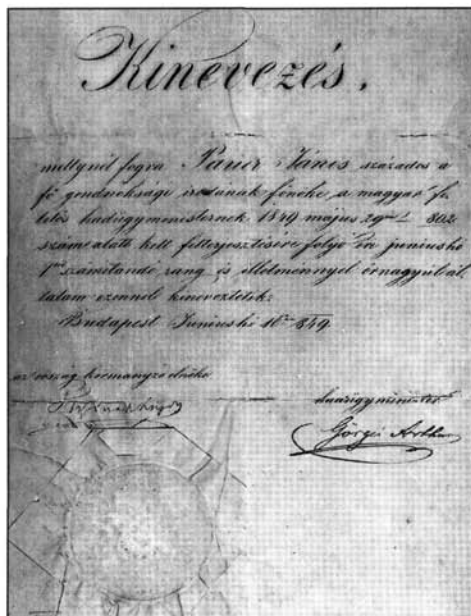 Kinevezés.
mellynél fogva Pauer János százados a
fő gondnoksági irodának főnöke, a magyar fe-
lelős hadügyministernek 1849 május 29én 802
szám alatt kelt felterjesztésére folyó évi juniushó
1től számítandó rang és illetménnyel őrnagyúl ál-
talam ezennel kineveztetik.
Budapest Juniushó 16án 849
az ország kormányzó elnöke
hadügyminister
Görgei Arthur